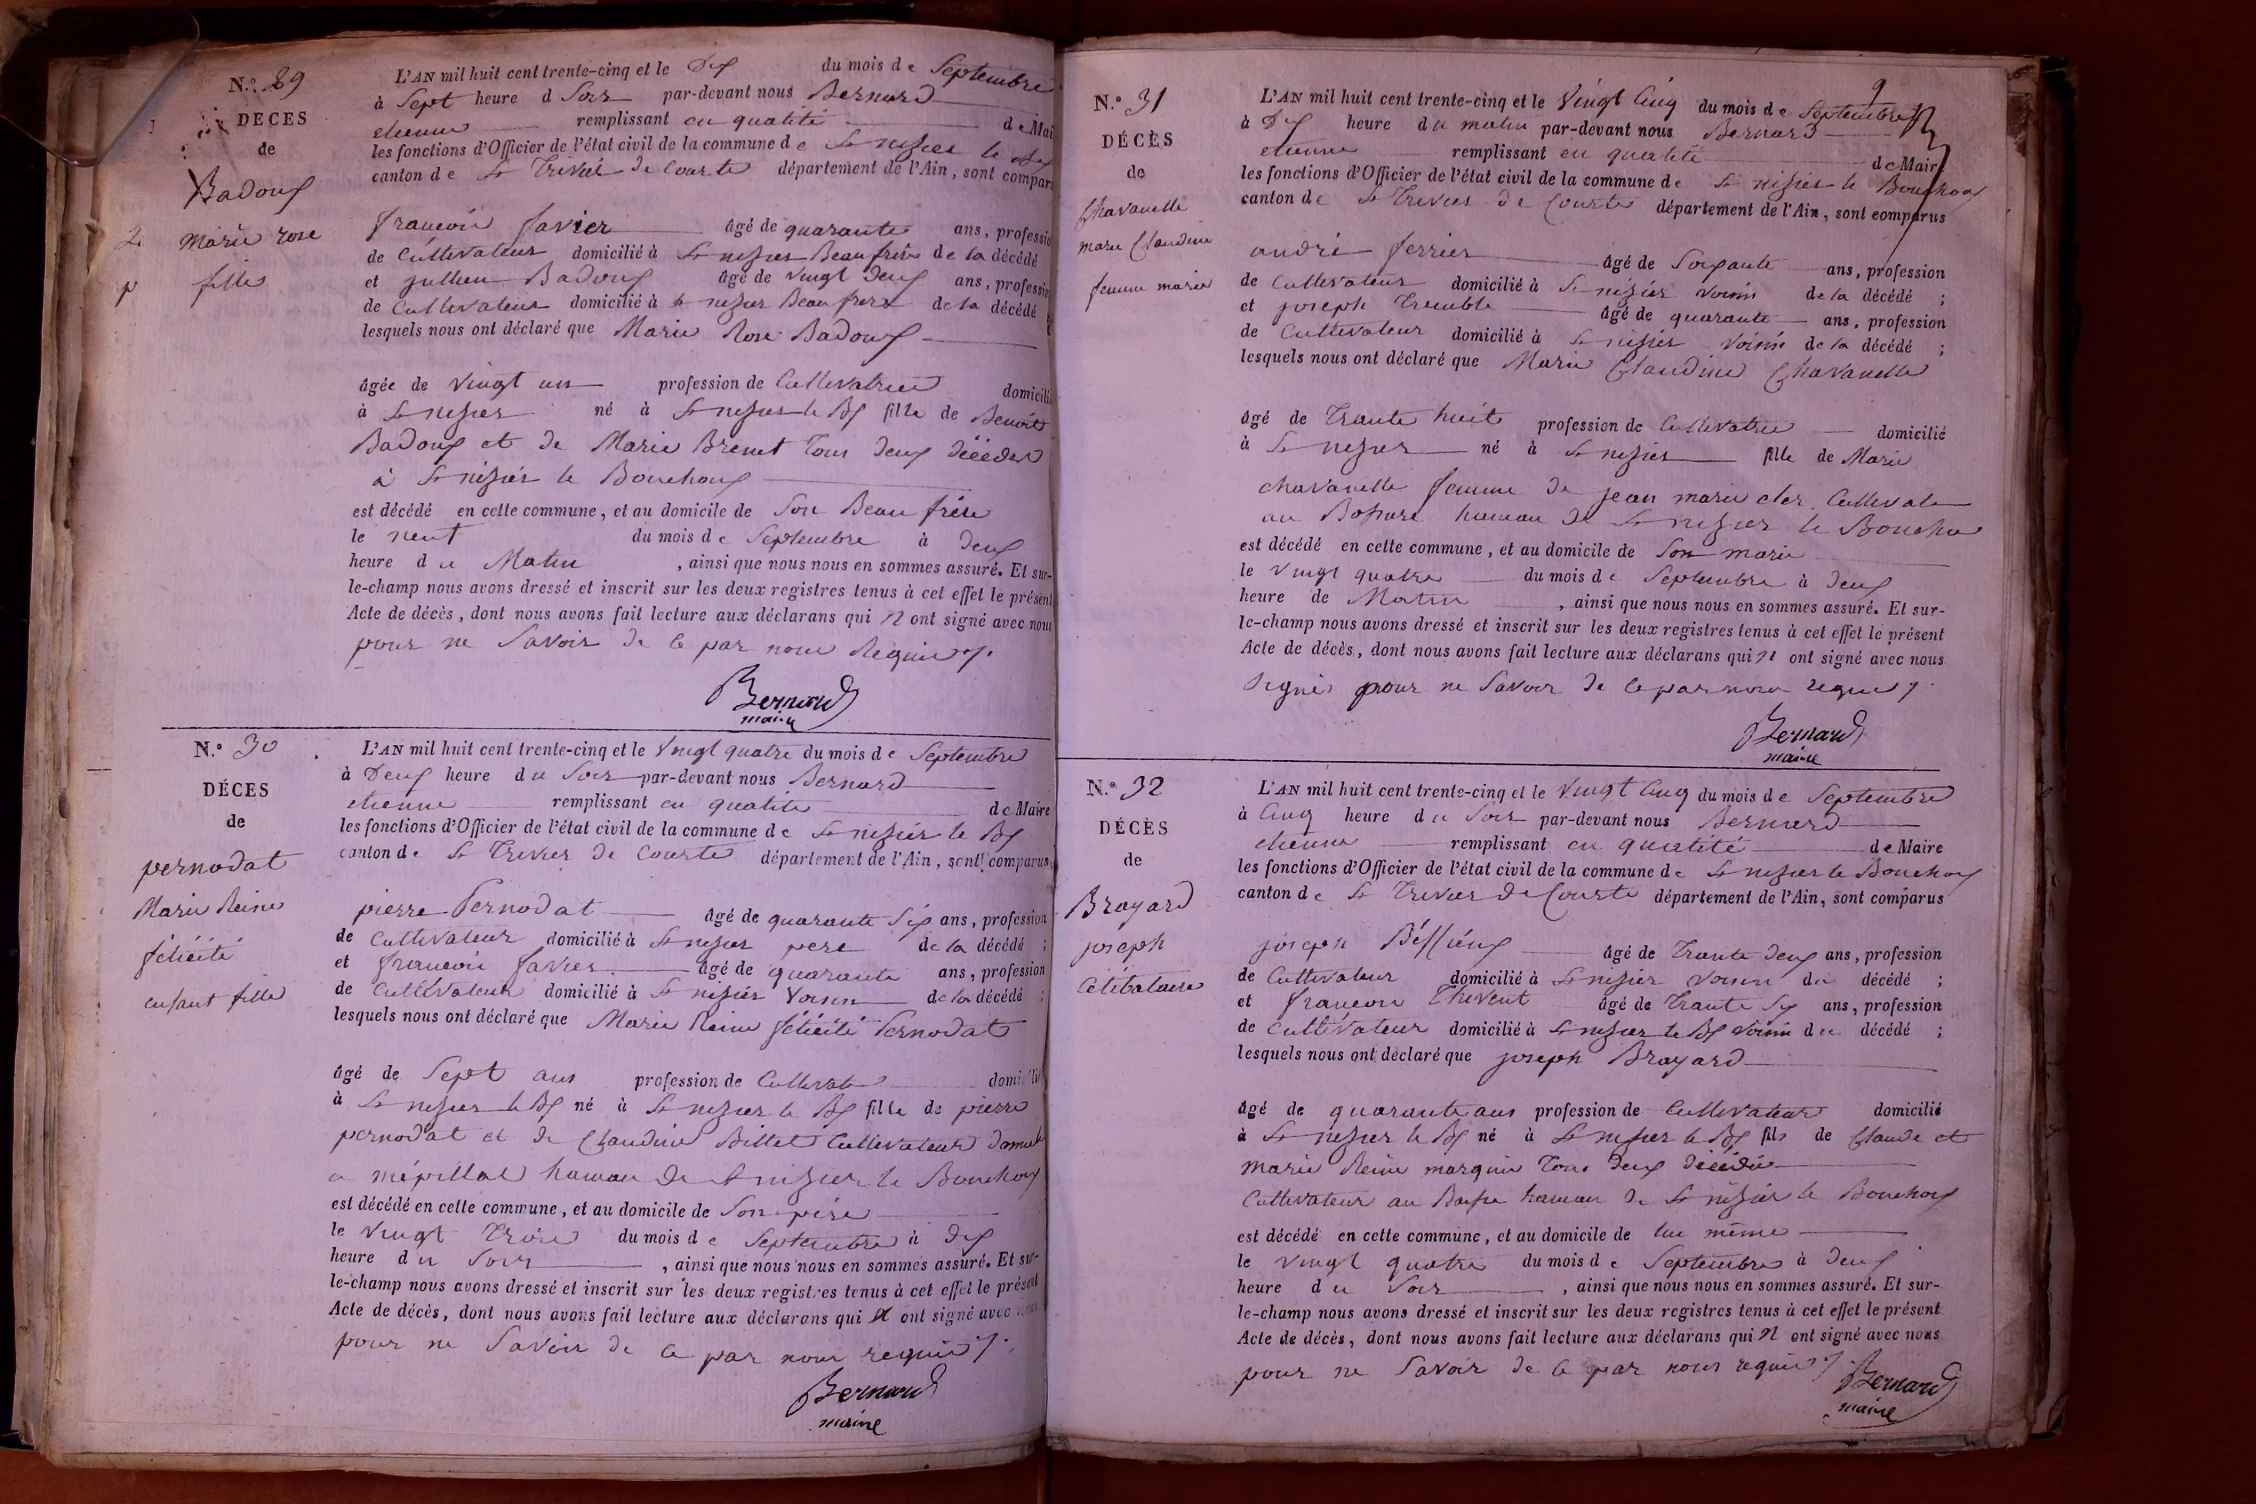 N.o 29
DÉCES
de
Badoux
marie rose
fille
2
p
L'AN mil huit cent trente-cinq et le Dix du mois de Septembre
à Sept heure d Soir par-devant nous Bernard
etienne remplissant en qualité de Mai
les fonctions d'Officier de l'état civil de la commune de St nizier le Bx
canton de St Trivier de Courte département de l'Ain, sont compar
francois favier âgé de quarante ans, professio
de Cultivateur domicilié à St nizier Beau frère de la décédé
et jullien Badoux âgé de vingt Deux ans, professio
de Cultivateur domicilié à St nizier Beau frere de la décédé
lesquels nous ont déclaré que Marie Rose Badoux
âgée de vingt un profession de Cultivatrice domicili
à St nizier né à St nizier le Bx fille de Benoit
Badoux et de Marie Brenet Tous deux décédés
à St nizier le Bouchoux
est décédé en cette commune, et au domicile de Son Beau frère
le neuf du mois de Septembre à Deux
heure du Matin , ainsi que nous nous en sommes assuré. Et sur-
le-champ nous avons dressé et inscrit sur les deux registres tenus à cet effet le présent
Acte de décès, dont nous avons fait lecture aux déclarans qui n ont signé avec nous
pour ne Savoir de ce par nous Requis
Bernard
maire
N.o 30
DÉCES
de
pernodat
Marie Reine
félicité
enfant fille
L'AN mil huit cent trente-cinq et le Vingt quatre du mois de Septembre
à Deux heure du Soir par-devant nous Bernard
etienne remplissant en qualité de Maire
les fonctions d'Officier de l'état civil de la commune de St nizier le Bx
canton de St Trivier de Courte département de l'Ain, sont comparus
pierre Pernodat âgé de quarante Six ans, profession
de Cultivateur domicilié à St nizier pere de la décédé ;
et francois favier âgé de quarante ans, profession
de Cultivateur domicilié à St nizier Voisin de la décédé ;
lesquels nous ont déclaré que Marie Reine félicité Pernodat
âgé de Sept ans profession de Cultivat domicilié
à St nizier le Bx né à St nizier le Bx fille de pierre
pernodat et de Claudine Billet Cultivateur
a mépillat hamau de St nizier le Bouchoux
est décédé en cette commune, et au domicile de Son père
le vingt Trois du mois de Septembre à dix
heure du Soir , ainsi que nous nous en sommes assuré. Et sur-
le-champ nous avons dressé et inscrit sur les deux registres tenus à cet effet le présent
Acte de décès, dont nous avons fait lecture aux déclarans qui n ont signé avec nous
pour ne Savoir de ce par nous requis
Bernard
maire
9
N.o 31
DÉCÈS
de
Chavanelle
marie Claudine
femme mariée
L'AN mil huit cent trente-cinq et le Vingt Cinq du mois de Septembre
à Dix heure du matin par-devant nous Bernard
etienne remplissant en qualité de Maire
les fonctions d'Officier de l'état civil de la commune de St nizier le Bouchoux
canton de St Trivier de Courte département de l'Ain, sont comparus
andré ferrier âgé de Soixante ans, profession
de Cultivateur domicilié à St nizier voisin de la décédé ;
et joseph Tremble âgé de quarante ans, profession
de Cultivateur domicilié à St nizier Voisin de la décédé ;
lesquels nous ont déclaré que Marie Claudine Chavanelle
âgé de Trante huit profession de Cultivatrice domicilié
à St nizier né à St nizier fille de Marie
chavanelle femme de jean marie cler Cultivate
au hamau de St nizier le Bouchou
est décédé en cette commune, et au domicile de Son marie
le vingt quatre du mois de Septembre à Deux
heure de Matin , ainsi que nous nous en sommes assuré. Et sur-
le-champ nous avons dressé et inscrit sur les deux registres tenus à cet effet le présent
Acte de décès, dont nous avons fait lecture aux déclarans qui n ont signé avec nous
Signés pour ne Savoir de ce par nous requis
Bernard
maire
N.o 32
DÉCÈS
de
Brayard
joseph
Célibataire
L'AN mil huit cent trente-cinq et le Vingt Cinq du mois de Septembre
à Cinq heure du Soir par-devant nous Bernard
etienne remplissant en qualité de Maire
les fonctions d'Officier de l'état civil de la commune de St nizier le Bouchoux
canton de St Trivier de Courte département de l'Ain, sont comparus
joseph âgé de Trante Deux ans, profession
de Cultivateur domicilié à St nizier voisin du décédé ;
et francois Thevent âgé de Trante Six ans, profession
de Cultivateur domicilié à St nizier le Bx Voisin du décédé ;
lesquels nous ont déclaré que joseph Brayard
âgé de quarante ans profession de Cultivateur domicilié
à St nizier le Bx né à St nizier le Bx fils de Claude et
marie Reine marquin Tous Deux décédés
Cultivateur au hamau de St nizier le Bouchoux
est décédé en cette commune, et au domicile de lui même
le vingt quatre du mois de Septembre à Deux
heure du Soir , ainsi que nous nous en sommes assuré. Et sur-
le-champ nous avons dressé et inscrit sur les deux registres tenus à cet effet le présent
Acte de décès, dont nous avons fait lecture aux déclarans qui n ont signé avec nous
pour ne Savoir de ce par nous requis
Bernard
maire